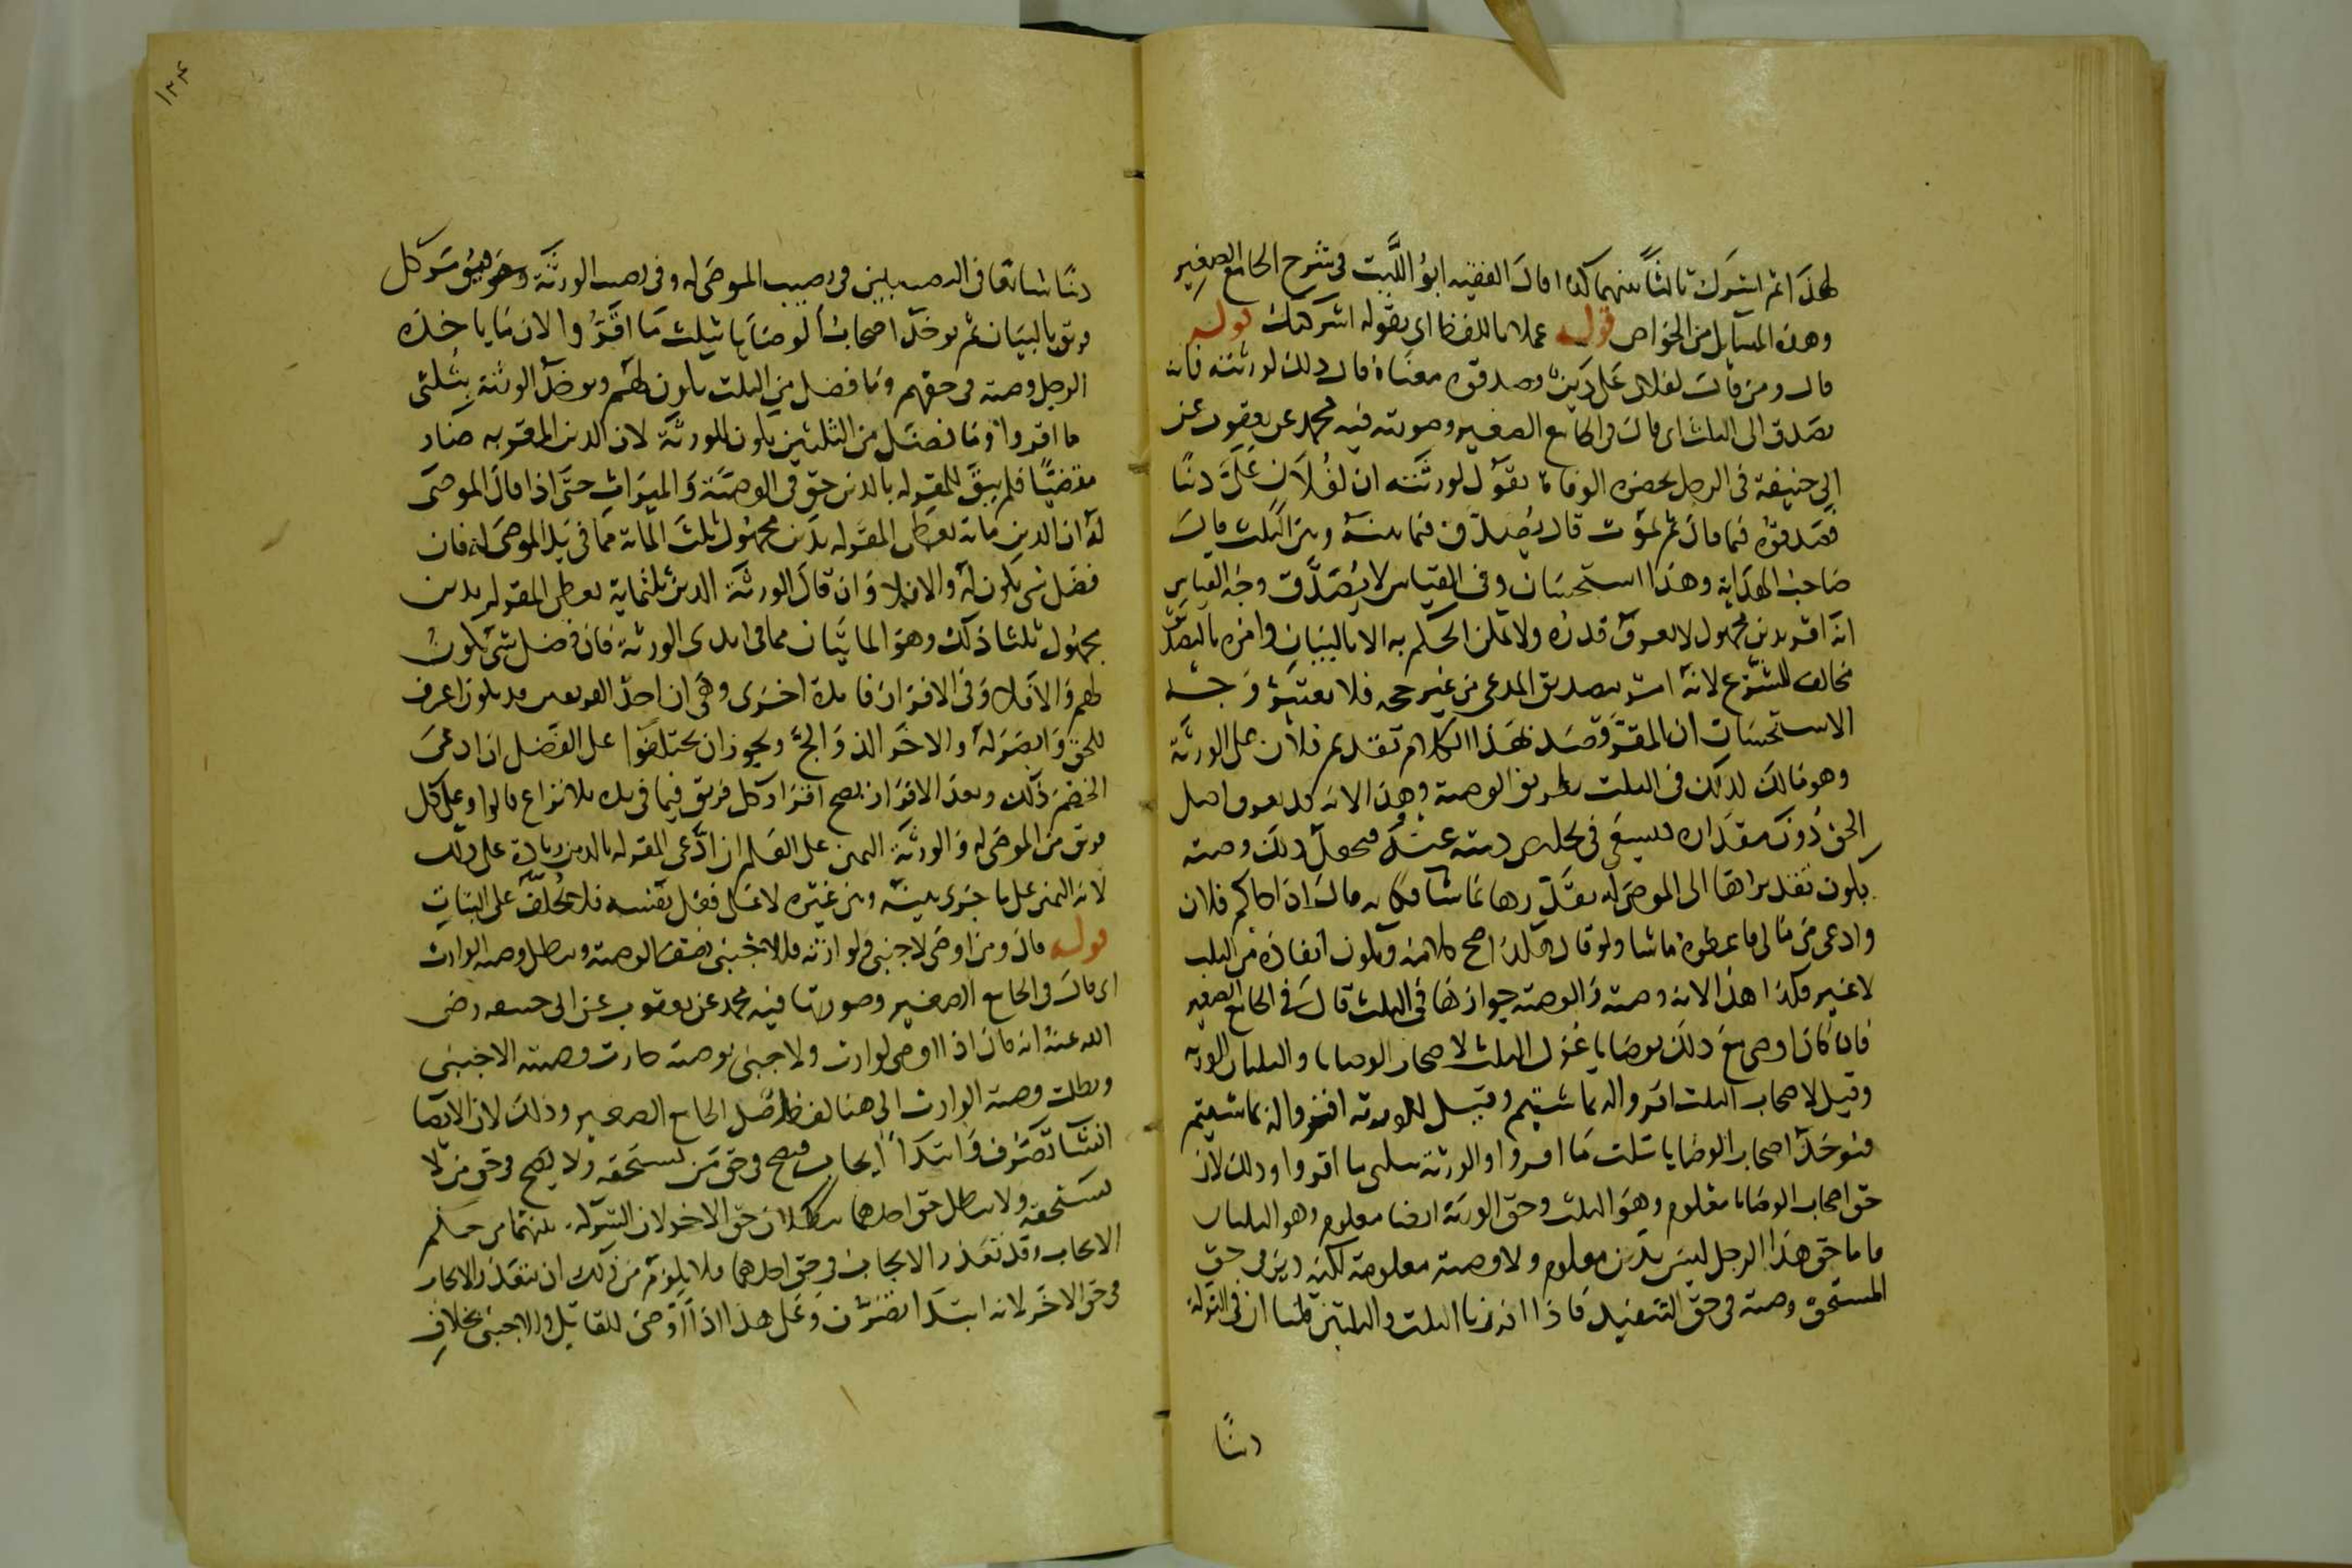 لهذا ثم اشرك ثالثا بينهما كذا قال الفقيه ابو الليث في شرح الجامع الصغير
وهذه المسايل من الخواص قوله عملا باللفظ اي بقوله اشركتك قوله
قال ومن قال لفلان على دين وصدقوه معناه قال ذلك لورثته فانه
يصدق الى الثلث اي قال في الجامع الصغير وصورته فيه محمد عن يعقوب عن
ابي حنيفة في الرجل بحضره الوفاة يقول لورثته ان لفلان علي دينا
فصدقوه فيما قال ثم يموت قال يصدق فيما بينه وبين الثلث قال
صاحب الهداية وهذا استحسان وفي القياس لا يصدق وجه القياس
انه اقر بدين مجهول لا يعرف قدره ولا يمكن الحكم به الا بالبيان وامره بالتصديق
مخالف للشرع لانه امر بتصديق المدعي من غير حجه فلا يعتبر وجه
الاستحسان ان المقر قصد بهذا الكلام تقديم فلان على الورثة
وهو مالك لذلك في الثلث بطريق الوصية وهذا لانه قد يعرف اصل
الحق دون مقداره فيسعى في تخليص ذمته عنه فيجعل ذلك وصية
يكون تقديرها الى الموصى له يقدرها ما شا فكانه قال اذا جاكم فلان
وادعى من مالي فاعطوه ما شا ولو قال هكذا صح كلامه ويكون انفاذه من الثلث
لا غير فكذا هذا لانه وصية والوصية جوازها في الثلث قال في الجامع الصغير
فان كان اوصى مع ذلك بوصايا عزل الثلث لاصحاب الوصايا والثلثان للورثة
وقيل لاصحاب الثلث اقروا له بما شيتم وقيل للورثة اقروا له بما شيتم
فيوخذ اصحاب الوصايا بثلث ما اقروا والورثة بثلثي ما اقروا وذلك لان
حق اصحاب الوصايا معلوم وهو الثلث وحق الورثة ايضا معلوم وهو الثلثان
فاما حق هذا الرجل ليس بدين معلوم ولا وصية معلومة لكنه دين في حق
المستحق وصية في حق التنفيذ فاذا افرزنا الثلث والثلثين علمنا ان في التركة
دينا
١٢٤
دينا شائعا في النصيبين في نصيب الموصى له وفي نصيب الورثة كل
فريق بالبيان ثم يوخذ اصحاب الوصايا بثلث ما اقروا لان ما ياخذه
الرجل وصية في حقهم وما فضل من الثلث يكون لهم ويوخذ الورثة بثلثي
ما اقروا وما فضل من الثلثين يكون للورثة لان الدين المقر به صار
مقضيا فلم يبق للمقر له بالدين حق في الوصية والميراث حتى اذا قال الموصى
له ان الدين ماية يعطى المقر له بدين مجهول ثلث الماية مما في يد الموصى له فان
فضل شي يكون له والا فلا وان قال الورثة الدين ثلثماية يعطى المقر له بدين
مجهول ثلثا ذلك وهو المايتان مما في ايدى الورثة فان فضل شي يكون
لهم والا فلا وفي الافراز فايدة اخرى وهي ان احد الفريقين قد يكون اعرف
للحق وابصر له والاخر الذ والج ويجوز ان يختلفوا على الفضل اذا ادعى
الخصم ذلك وبعد الافراز يصح اقرار كل فريق فيما في يده بلا نزاع قالوا وعلى كل
فريق من الموصى له والورثة اليمين على العلم ان ادعى المقر له بالدين زيادة على ذلك
لانه اليمين على ما جرى بينه وبين غيره لا على فعل نفسه فلا يحلف على البتات
قوله قال ومن اوصى لاجنبي ولوارثه فللاجنبي نصف الوصية وبطل وصية الوارث
اي قال في الجامع الصغير وصورتها فيه محمد عن يعقوب عن ابي حنيفة رضي
الله عنه انه قال اذا اوصى لوارث ولاجنبي بوصية جازت وصية الاجنبي
وبطلت وصية الوارث الى هنا لفظ اصل الجامع الصغير وذلك لان الايصا
انشا تصرف وابتدا ايجاب فيصح في حق من يستحقه ولا يصح في حق من لا
يستحقه ولا يبطل حق احدهما ببطلان حق الاخر لان الشركة بينهما من حكم
الايجاب وقد تعذر الايجاب في حق احدهما فلا يلزم من ذلك ان يتعذر الايجاب
في حق الاخر لانه ابتدا تصرف وعلى هذا اذا اوصى للقاتل وللاجنبي بخلاف